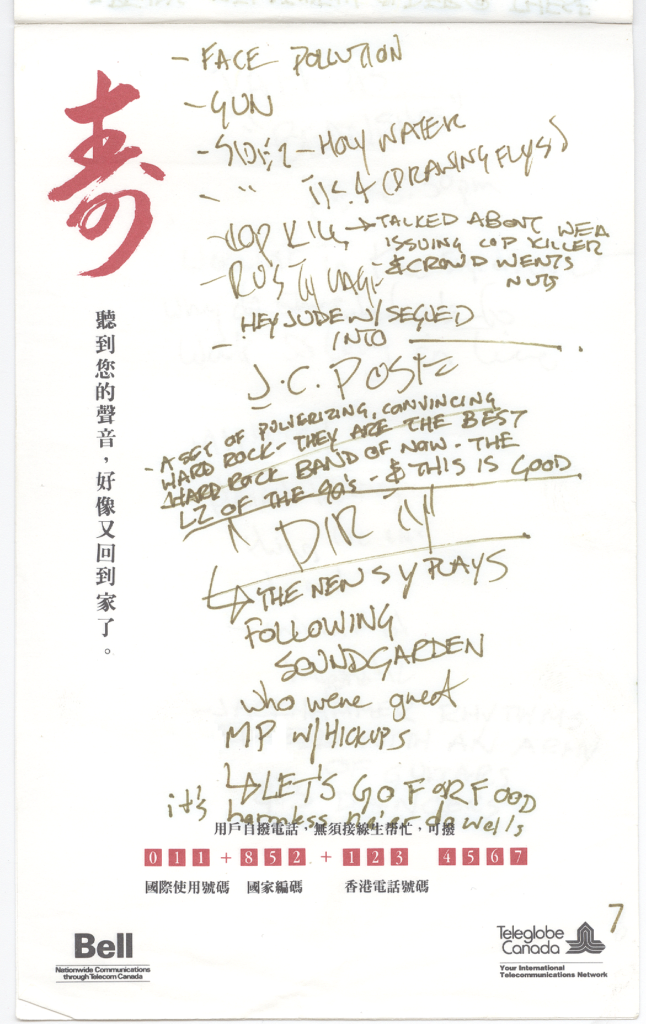 - FACE POLLUTION
- GUN
- SIDE 2 - HOLY WATER
- " " (DRAWING FLYS)
- COP KILL → TALKED ABOUT WEA
ISSUING COP KILLER
& CROWD WENTS
NUTS
- RUSTY CAGE
- HEY JUDE W/ SEGUED
INTO
J.C. POSE
- A SET OF PULVERIZING, CONVINCING
HARD ROCK - THEY ARE THE BEST
HARD ROCK BAND OF NOW - THE
LZ OF THE 90'S - & THIS IS GOOD
DIR
↳ THE NEW S Y PLAYS
FOLLOWING
SOUNDGARDEN
who were great
MP W/ HICKUPS
↳ LET'S GO FOR FOOD
it's harmless ne'er do wells
壽
聽到您的聲音,好像又回到家了。
用戶自撥電話,無須接線生幫忙,可撥
011 + 852 + 123 4567
國際使用號碼 國家編碼 香港電話號碼
7
Bell
Nationwide Communications
through Telecom Canada
Teleglobe
Canada
Your International
Telecommunications Network